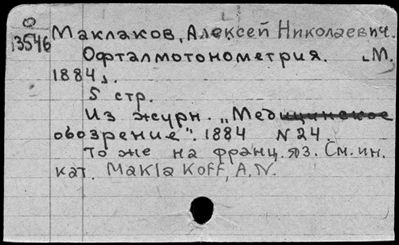 О
13546
Маклаков, Алексей Николаевич.
Офталмотонометрия. „М.
1884".
5 стр.
Из журн. „Медицинское
обозрение". 1884 N 24.
То же на франц. яз. См. ин.
кат. Maklakoff, A. N.